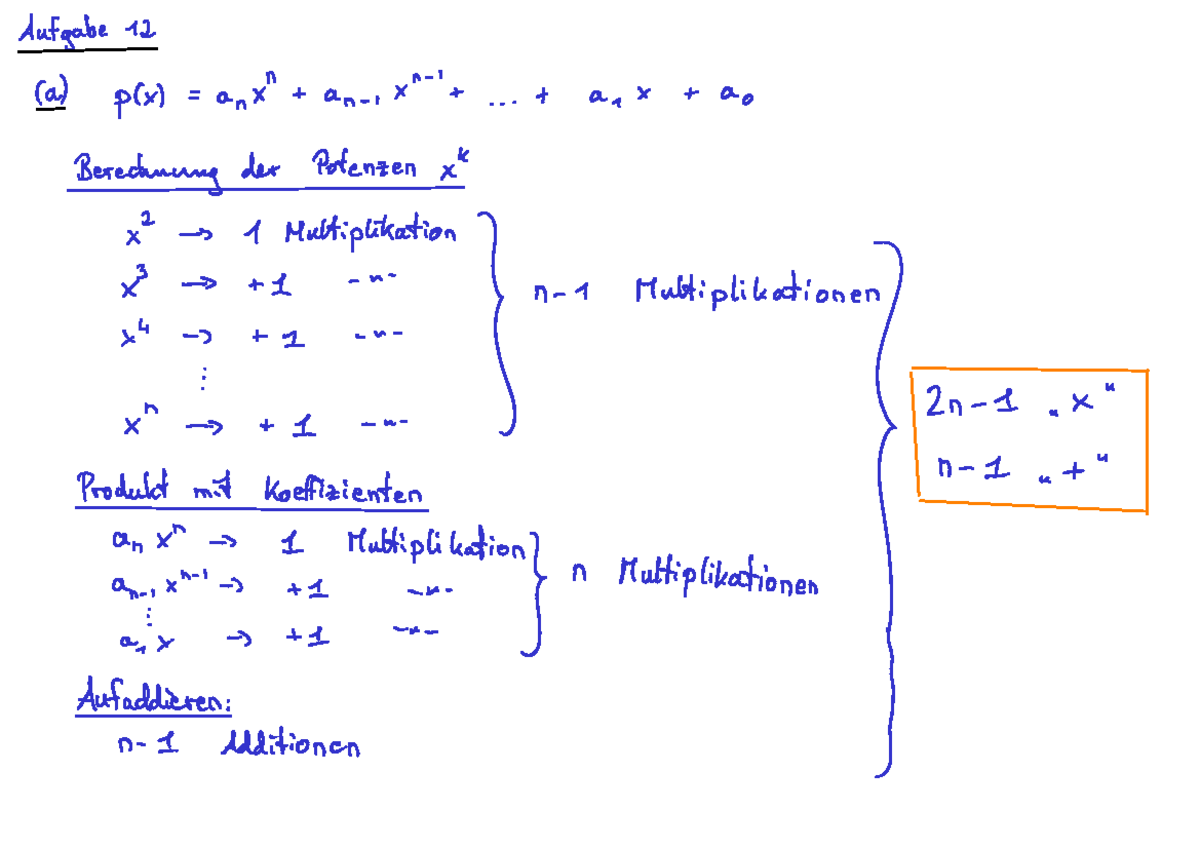 Aufgabe 12
(a) p(x) = aₙxⁿ + aₙ₋₁ xⁿ⁻¹ + ... + a₁ x + a₀
Berechnung der Potenzen xᵏ
x² → 1 Multiplikation
x³ → +1 -"-
n-1 Multiplikationen
x⁴ → +1 -"-
⋮
xⁿ → +1 -"-
2n-1 „x"
n-1 „+"
Produkt mit Koeffizienten
aₙ xⁿ → 1 Multiplikation
aₙ₋₁ xⁿ⁻¹ → +1 -"-
n Multiplikationen
⋮
a₁ x → +1 -"-
Aufaddieren:
n-1 Additionen